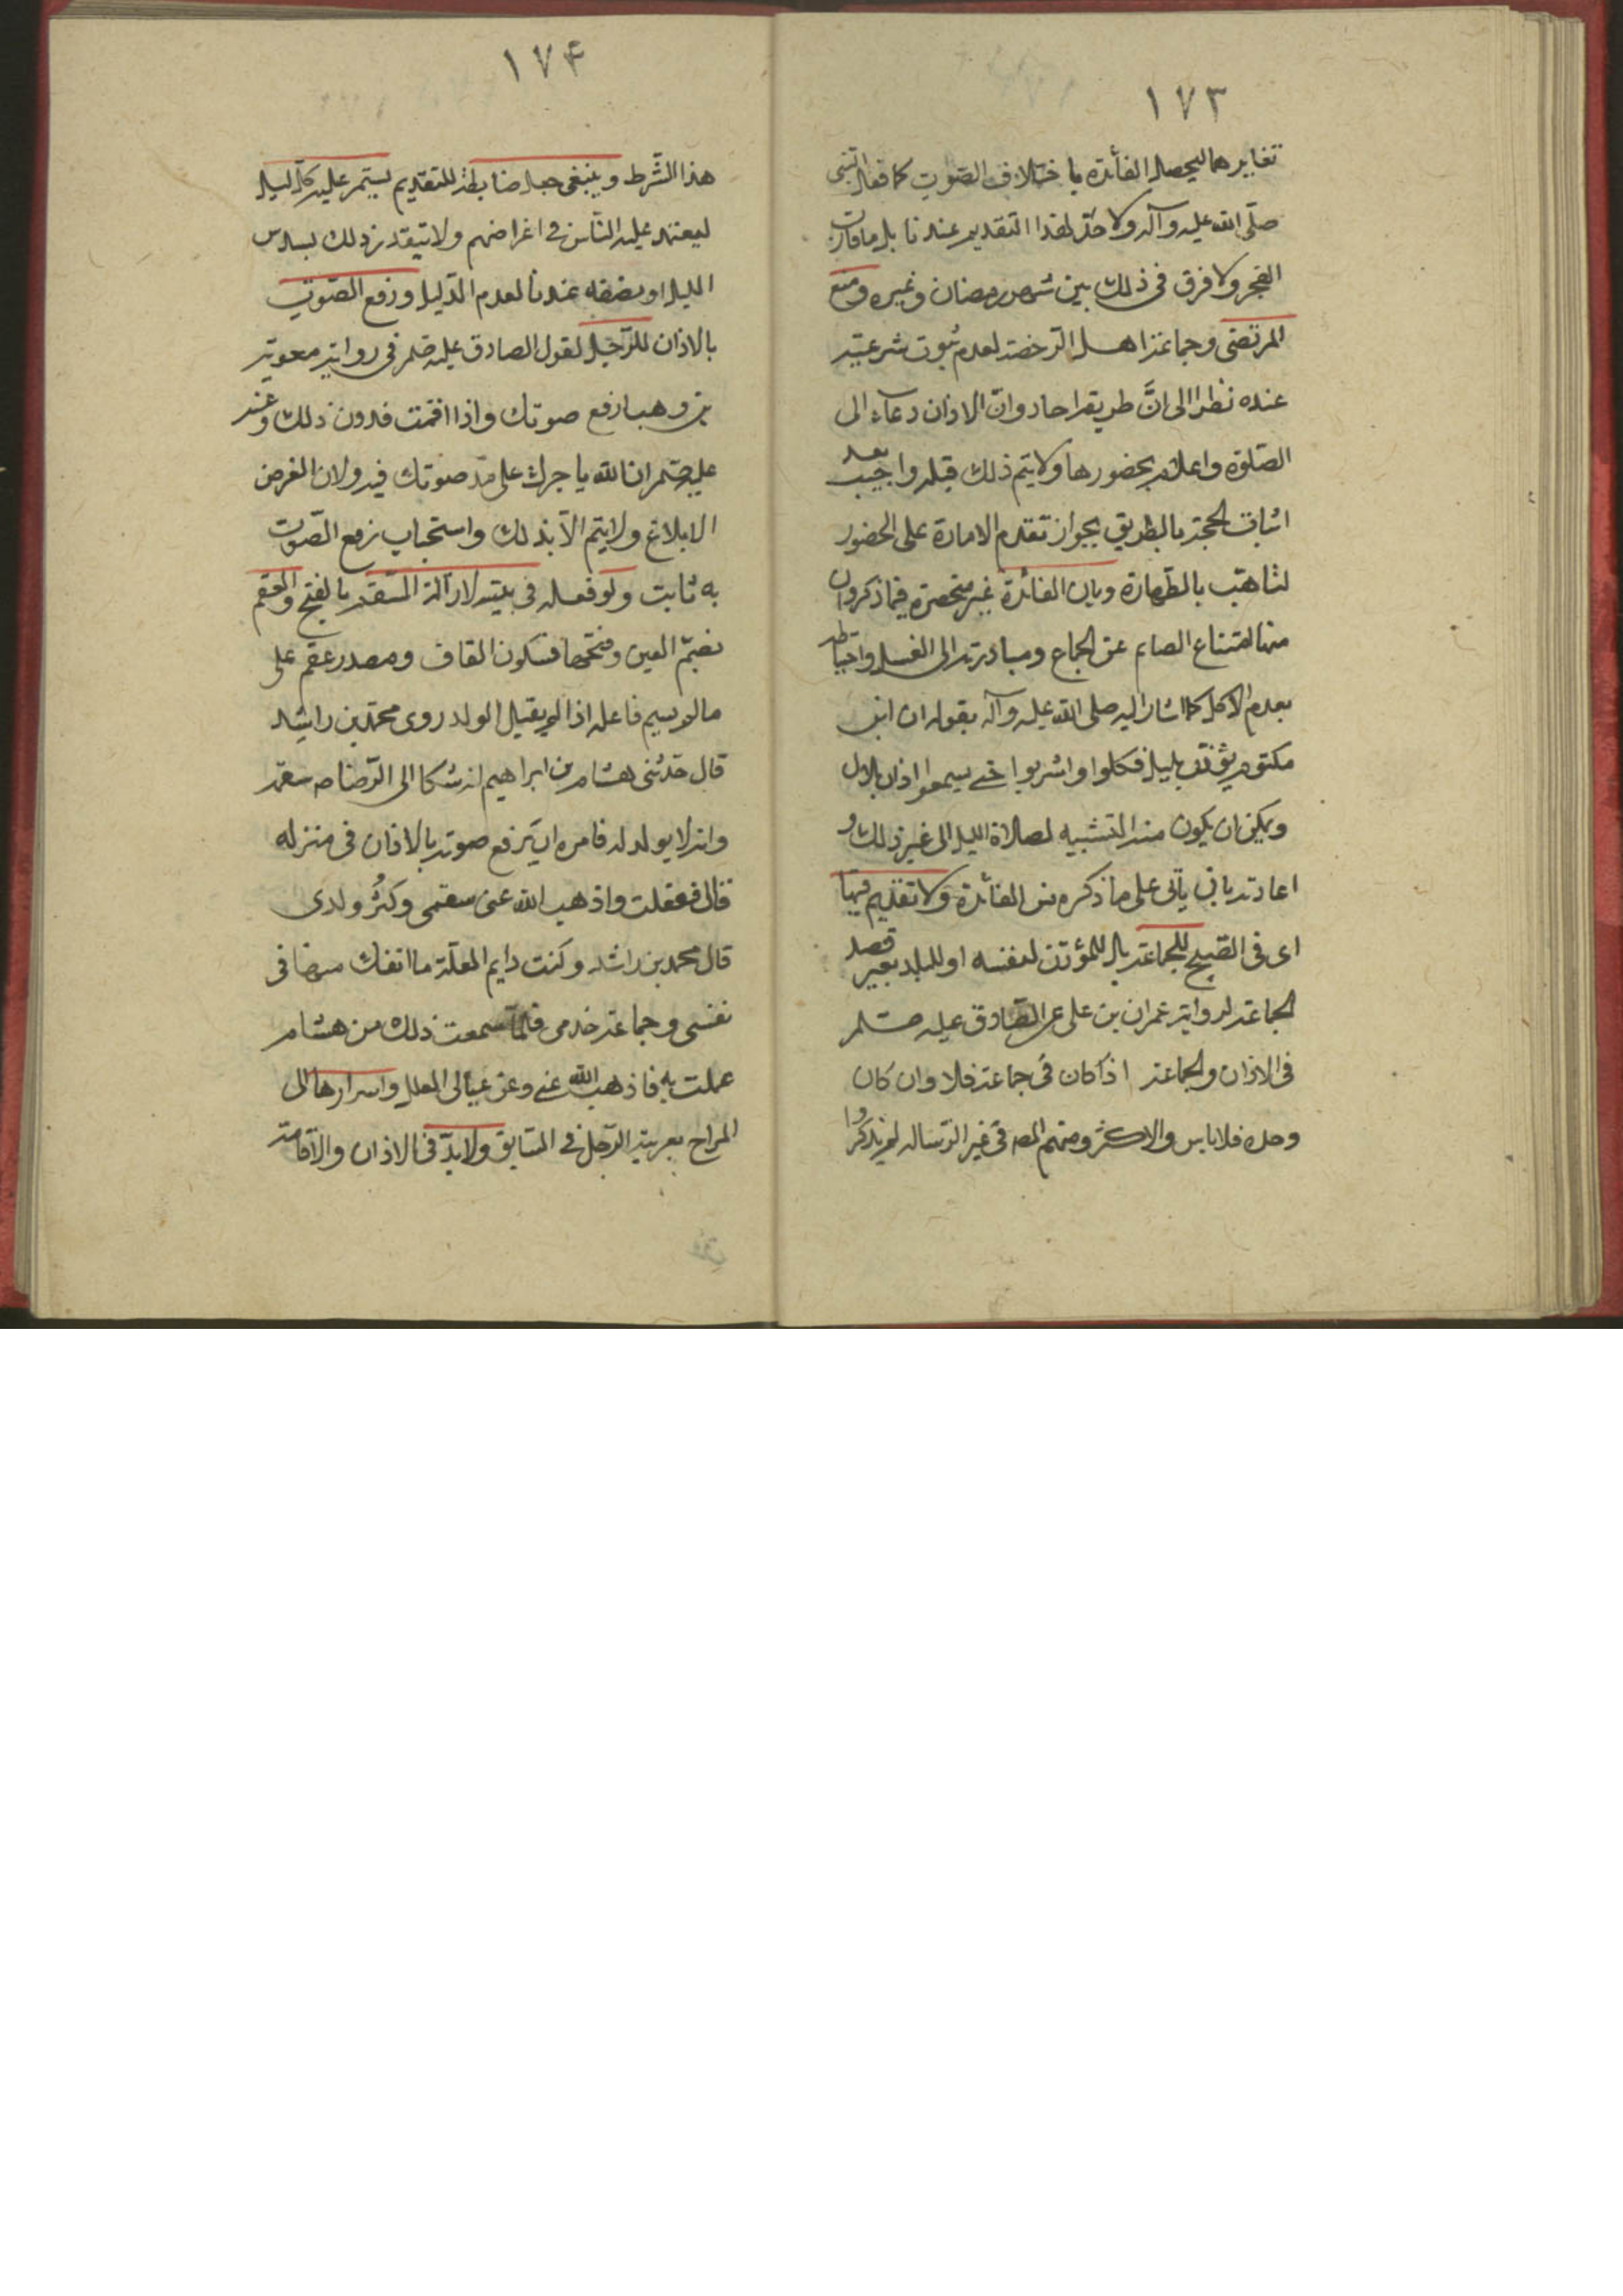 ١٧٣
تغايرهما ليحصل الفائدة باختلاف الصّوت كما فعل النبى
صلّى الله عليه وآله ولا حدّ لهذا التقديم عندنا بل ما قارب
الفجر ولا فرق فى ذلك بين شهر رمضان وغيره ومنع
المرتضى وجماعة اهل الرخصة لعدم ثبوت شرعيته
عنده نظرا الى انّ طريقه احاد وانّ الاذان دعاء الى
الصّلوة واعلام بحضورها ولا يتم ذلك قبله واجيب بعد
اثبات الحجة بالطريق بجواز تقدم الامارة على الحضور
لتاهب بالطهارة وبان الفائدة غير منحصرة فيما ذكروان
منها امتناع الصايم عن الجماع ومبادرته الى الغسل واحتياطه
بعدم الاكل كما اشار اليه صلى الله عليه وآله بقوله ان ابن
مكتوم يؤذن بليل فكلوا واشربوا حتى يسمعوا اذان بلال
ويمكن ان يكون منه التشبيه لصلاة الليل الى غير ذلك و
اعادته باق ياتى على ما ذكره من الفائدة ولا تقديم فيها
اى فى الصّبح للجماعة بل للمؤذن لنفسه او للبلد بغير قصد
الجماعة لرواية عمران بن على عن الصّادق عليه صلم
فى الاذان والجماعة اذا كان فى جماعة فلا وان كان
وحده فلا باس والاكثر ومنهم المص فى غير الرّساله لم يذكروا
١٧۴
هذا الشّرط وينبغى جعل ضابطة للتقديم يستمر عليه كل ليلة
ليعتمد عليه النّاس فى اغراضهم ولا يتقدر ذلك بسدس
الليل او نصفه عندنا لعدم الدّليل ورفع الصّوت
بالاذان للرّجل لقول الصادق عليه صلم فى رواية معوية
بن وهب ارفع صوتك واذا اقمت فدون ذلك وعنه
عليه صلم ان الله ياجرك على مدّ صوتك فيه ولان الغرض
الابلاغ ولا يتم الّا بذلك واستحباب رفع الصّوت
به ثابت ولو فعله فى بيته لازالة السّقم بالفتح والعقم
بضمّ العين وفتحها فسكون القاف ومصدر عقم على
ما لم يسم فاعله اذا لم يقبل الولد روى محمّد بن راشد
قال حدّثنى هشام بن ابراهيم انه شكا الى الرّضا ص سقمه
وانه لا يولد له فامره ان يرفع صوته بالاذان فى منزله
قال ففعلت واذهب الله عنى سقمى وكثُر ولدى
قال محمد بن راشد وكنت دايم العلّة ما انفك منها فى
نفسى وجماعة خدمى فلمّا سمعت ذلك من هشام
عملت به فاذهب الله عنى وعن عيالى العلل واسرارها الى
المراح بعربية الرّجل فى السّابق ولا بدّ فى الاذان والاقامة